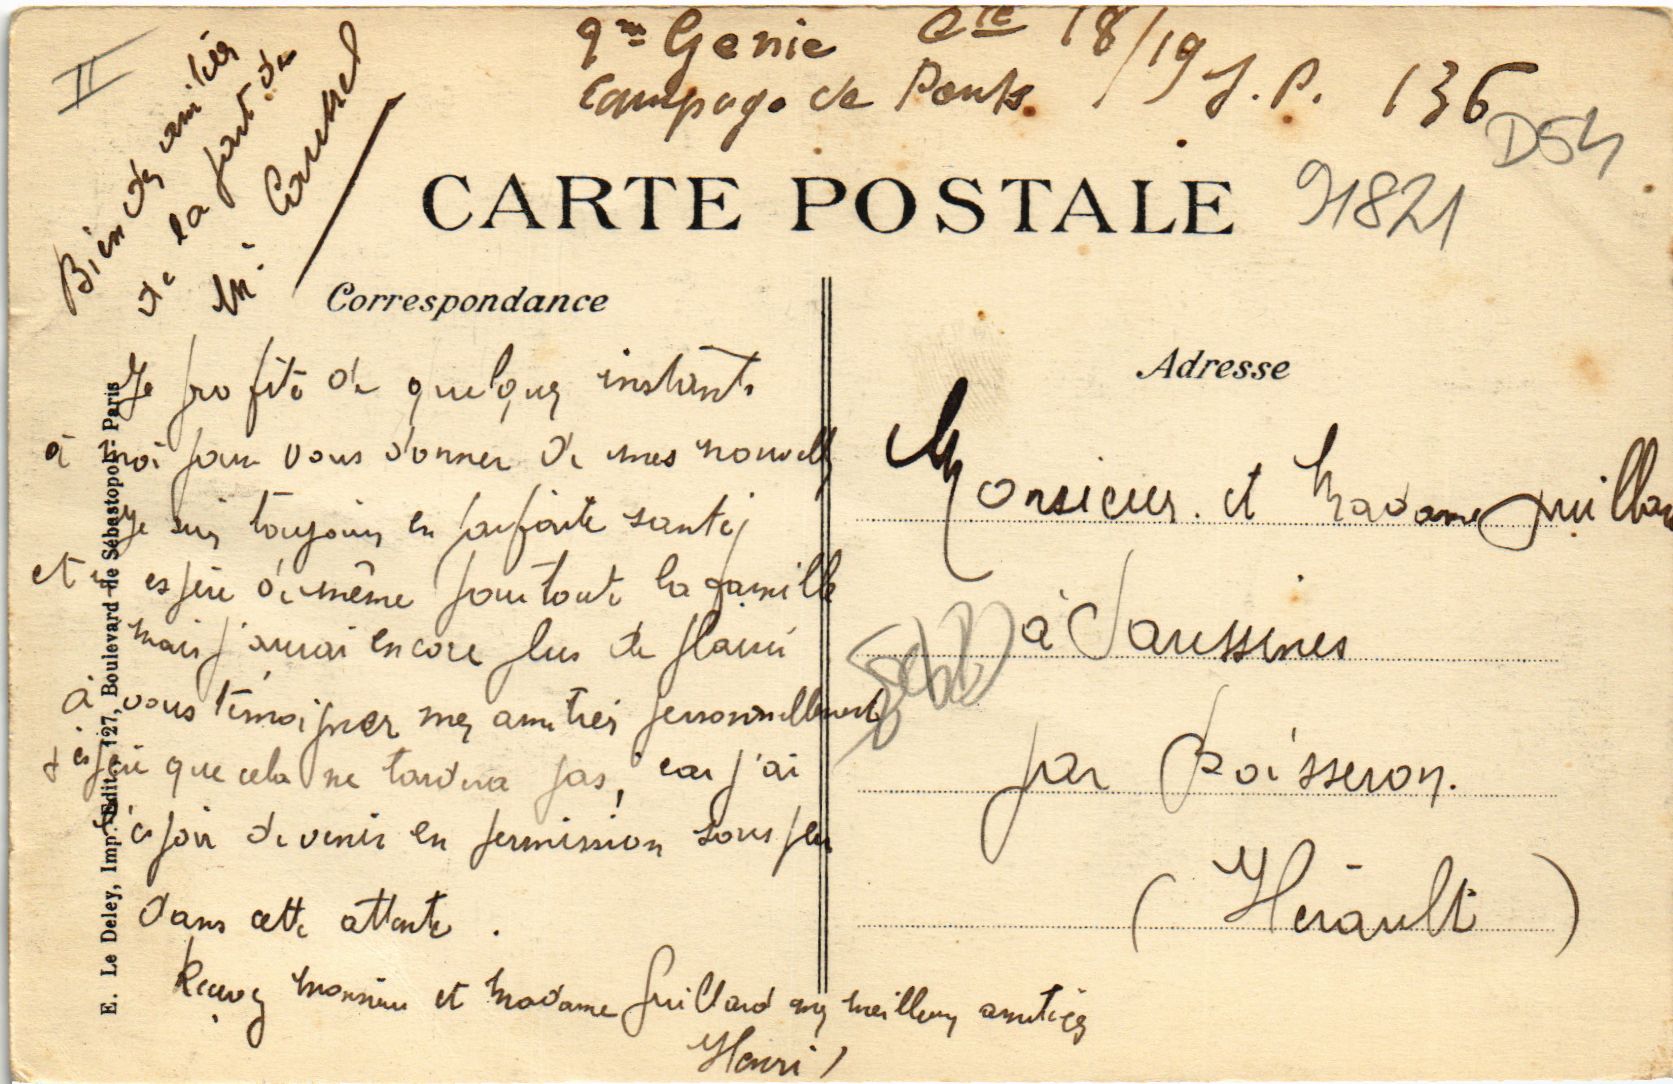 II
9me Genie Cie 18/19 S. P. 136
Equipage de Ponts
D54
91821
Bien des amitiés
de la part de
M.
CARTE POSTALE
Correspondance
Je profite de quelques instants
à moi pour vous donner de mes nouvelles
Je suis toujours en parfaite santé
et espère de même pour toute la famille
mais j'aurai encore plus de plaisir
à vous témoigner mes amitiés personnellement
j'espère que cela ne tardera pas, car j'ai
espoir de venir en permission sous peu
dans cette attente.
Recevez Monsieur et Madame Guillard mes meilleures amitiés
Henri
Adresse
Monsieur et Madame Guillard
à Saussines
par Boisseron.
(Hérault)
E. Le Deley, Imp.-Edit., 127, Boulevard de Sébastopol - Paris